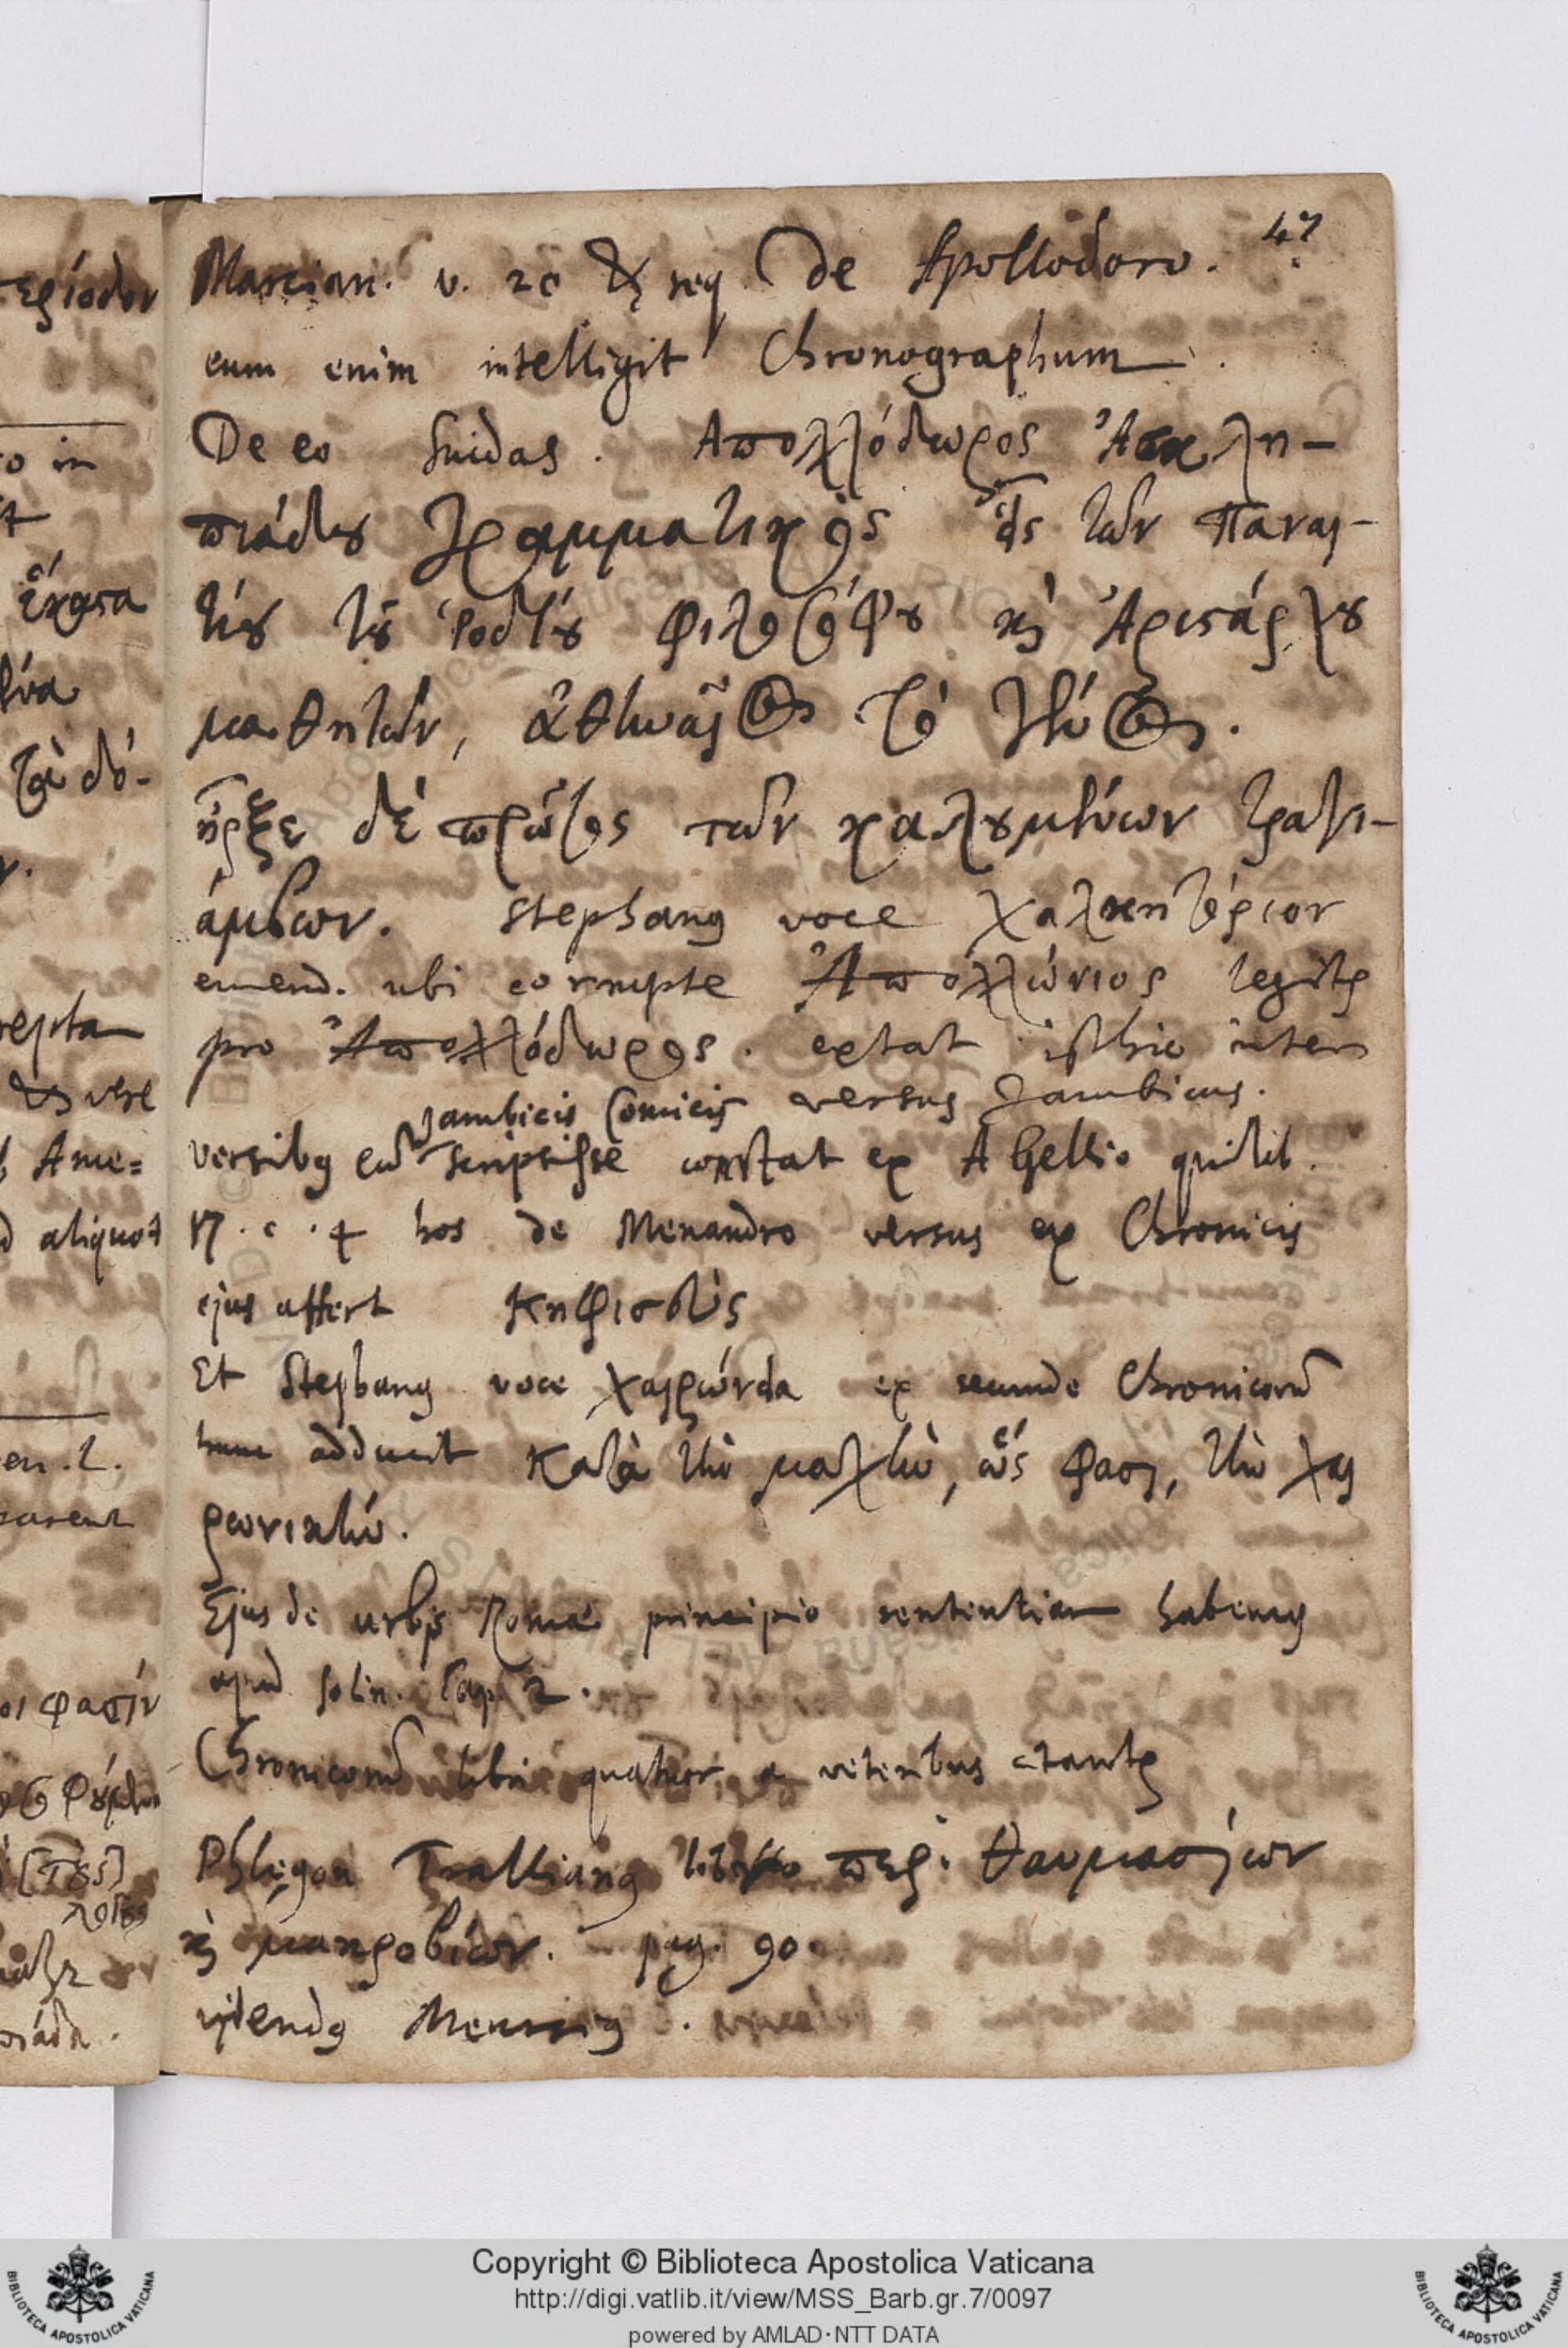 47
Marcian. v. 20 & seq. De Apollodoro.
eum enim intelligit Chronographum.
De eo Suidas. Ἀπολλόδωρος Ἀσκλη-
πιάδου Γραμματικὸς εἷς τῶν Παναι-
τίου τοῦ Ῥοδίου φιλοσόφου καὶ Ἀριστάρχου
μαθητῶν, ἀθηναῖος τὸ γένος.
ἦρξε δὲ πρῶτος τῶν καλουμένων τραγι-
άμβων. Stephanus voce χαλκητόριον
emend. ubi corrupte Ἀπολλώνιος legitur
pro Ἀπολλόδωρος. extat isthic
versus Iambicus.
Iambicis Comicis
versibus eum scripsisse constat ex A Gellio qui lib.
17. c. 4 hos de Menandro versus ex Chronicis
ejus affert Κηφισιεὺς
Et Stephanus voce χαιρώνεια ex secundo Chronicorum
hunc adducit Κατὰ τὴν μάχην, ὥς φασι, τὴν χαι
ρωνικήν.
Ejus de urbis Romae principio sententiam habemus
apud Solin. Cap. 2.
Chronicorum libri quatuor a veteribus citantur
Phlegon Trallianus libro περὶ θαυμασίων
καὶ μακροβίων. pag. 90.
videndus Meursius.
Copyright © Biblioteca Apostolica Vaticana
http://digi.vatlib.it/view/MSS_Barb.gr.7/0097
powered by AMLAD·NTT DATA
BIBLIOTECA APOSTOLICA VATICANA
BIBLIOTECA APOSTOLICA VATICANA